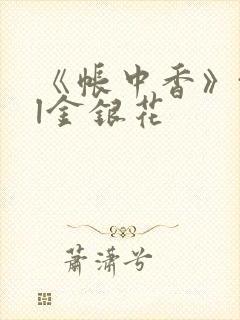 《帐中香》
|金银花
萧潇兮